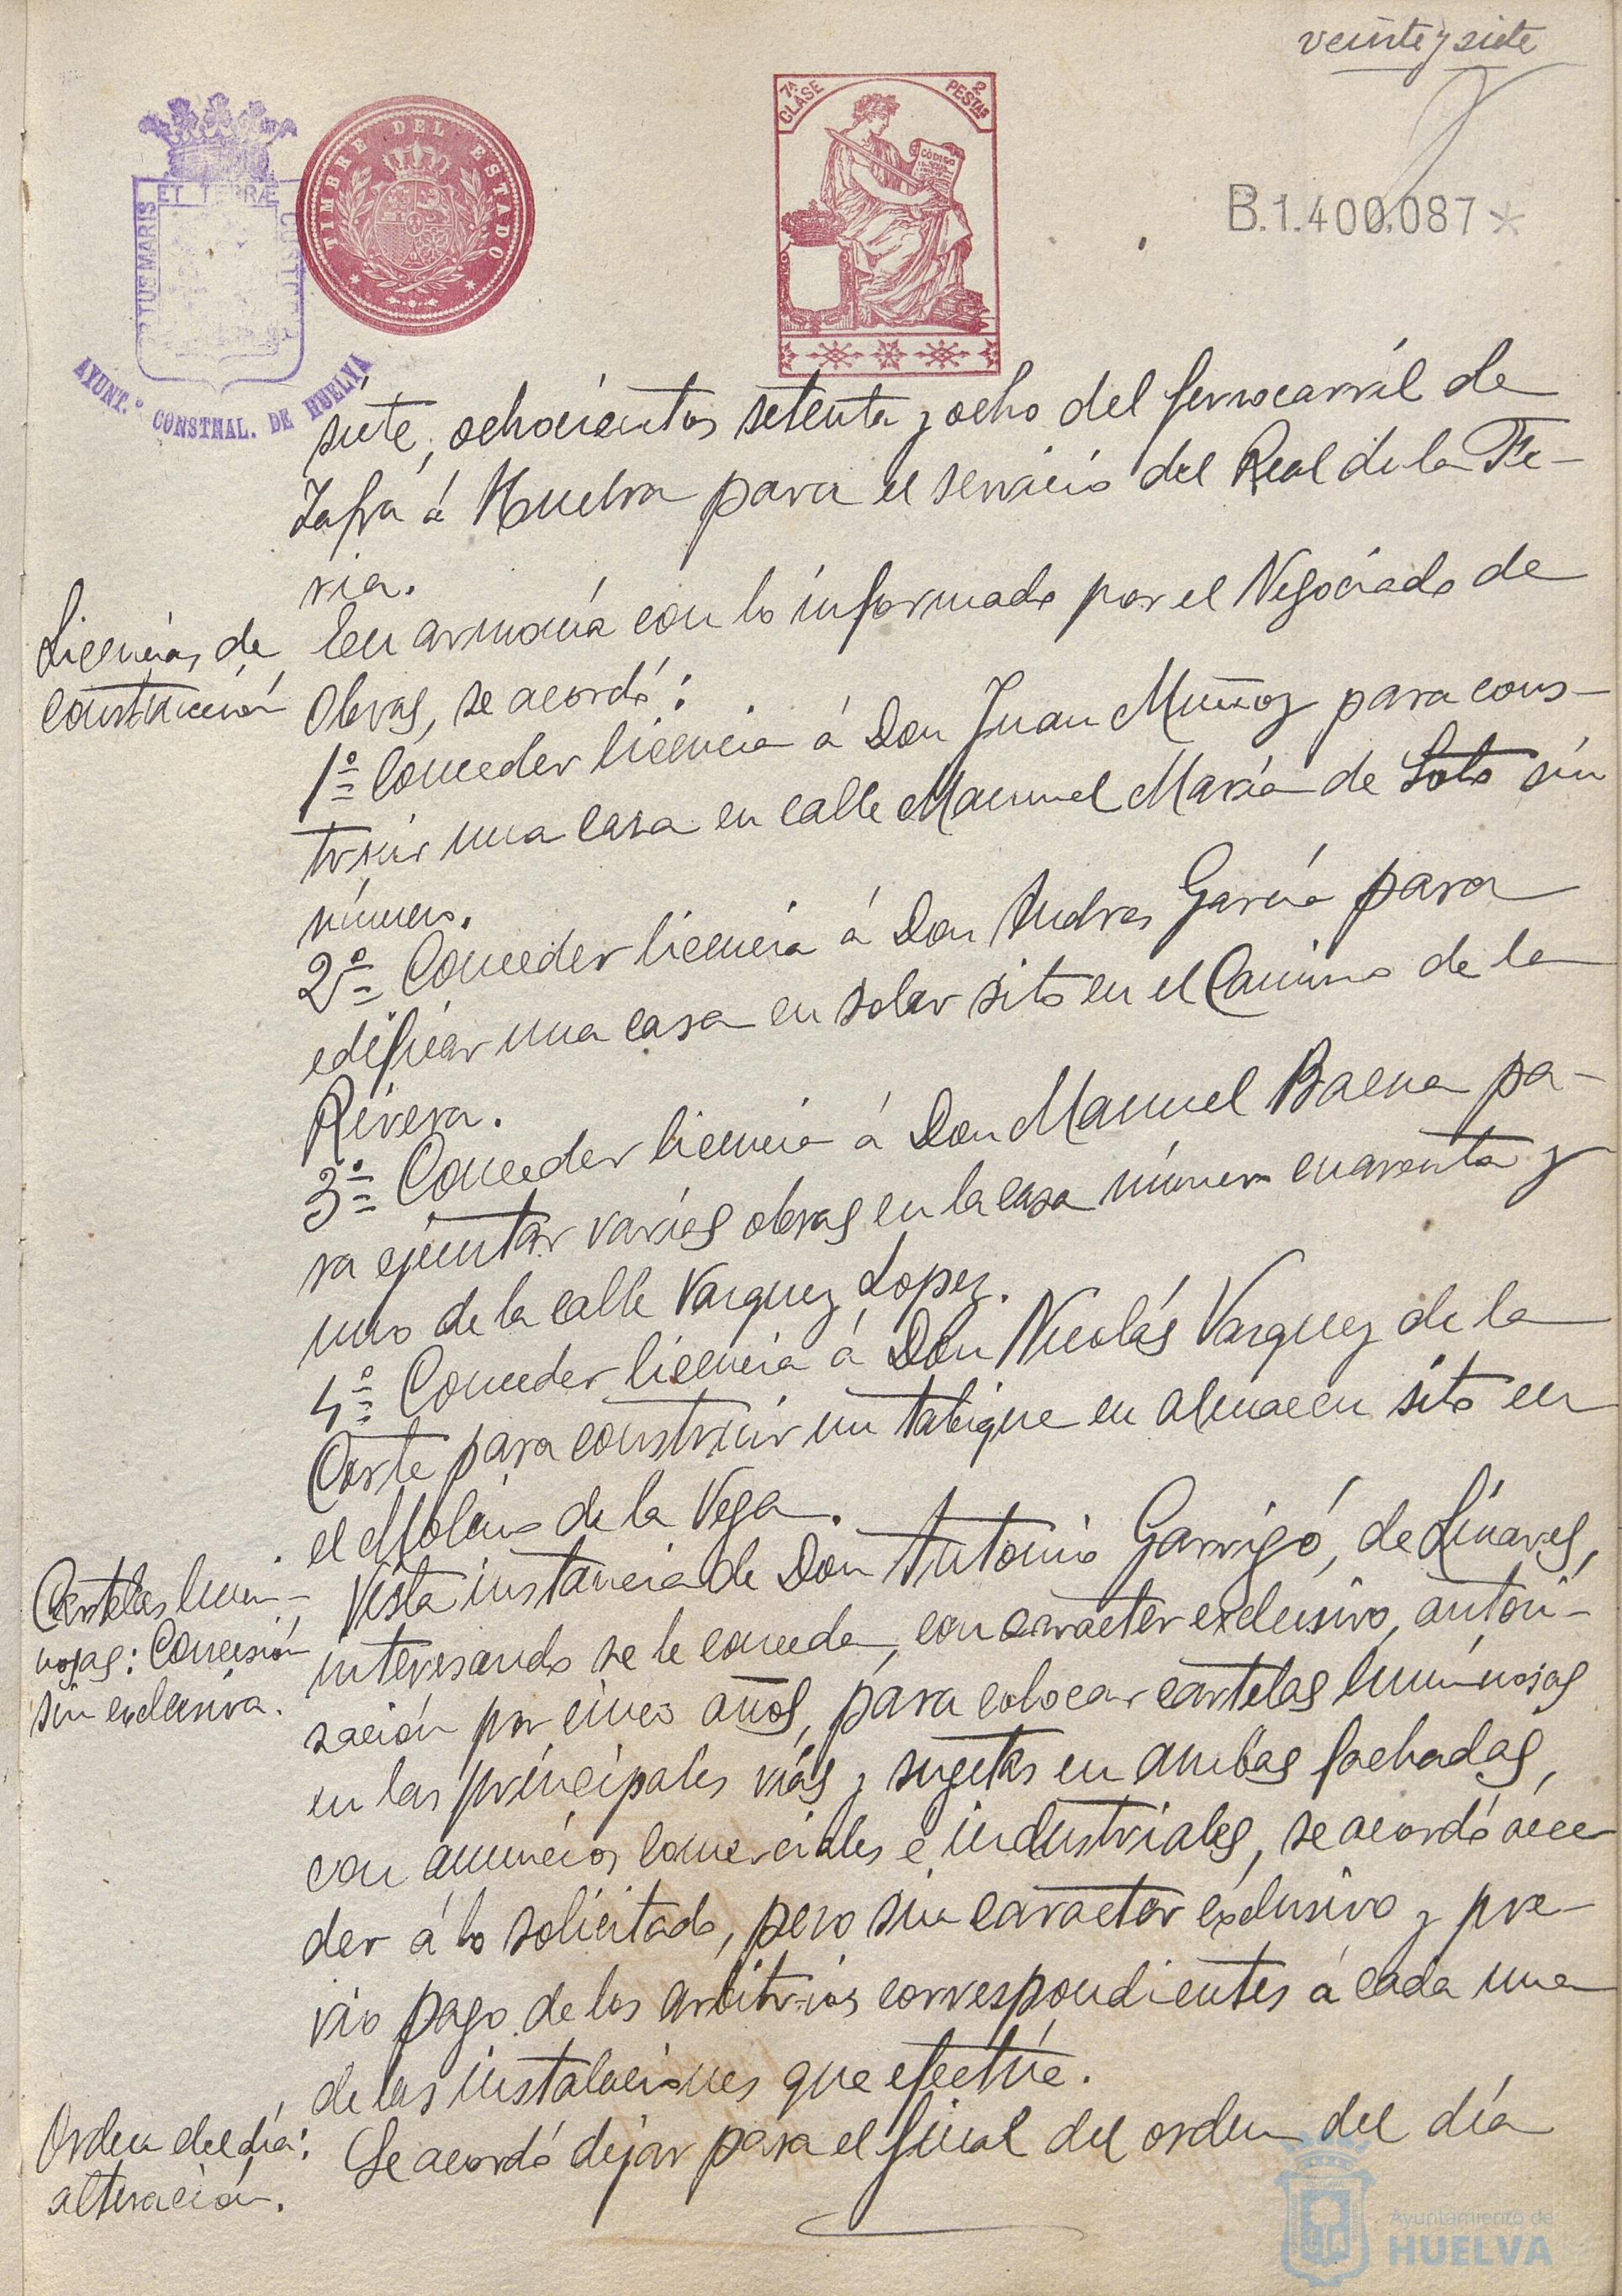 veinte y siete
7ª CLASE
2 PESTAS
CÓDIGO
TIMBRE DEL ESTADO
ET TERRÆ CUSTODIA
PORTUS MARIS
AYUNT.º CONSTNAL. DE HUELVA
B.1.400.087*
siete, ochocientos setenta y ocho del ferrocarril de
Zafra á Huelva para el servicio del Real de la Fe-
ria.
Licencias de
construcción
En armonía con lo informado por el Negociado de
Obras, se acordó:
1º Conceder licencia á Don Juan Muñoz para cons-
truir una casa en calle Manuel María de Soto sin
número.
2º Conceder licencia á Don Andres García para
edificar una casa en solar sito en el Camino de la
Rivera.
3º Conceder licencia á Don Manuel Baena pa-
ra ejecutar varias obras en la casa número cuarenta y
uno de la calle Vazquez Lopez.
4º Conceder licencia á Don Nicolás Vazquez de la
Corte para construir un tabique en almacen sito en
el Molino de la Vega.
Cartelas lumi-
nosas: Concesión
sin exclusiva.
Vista instancia de Don Antonio Garrigó, de Linares,
interesando se le conceda, con caracter exclusivo, autori-
zación por cinco años, para colocar cartelas luminosas
en las principales vías y sugetas en ambas fachadas,
con anuncios comerciales é industriales, se acordó acce
der á lo solicitado, pero sin caracter exclusivo y pre-
vio pago de los arbitrios correspondientes á cada una
de las instalaciones que efectúe.
Orden del día:
alteración.
Se acordó dejar para el final del orden del día
Ayuntamiento de
HUELVA